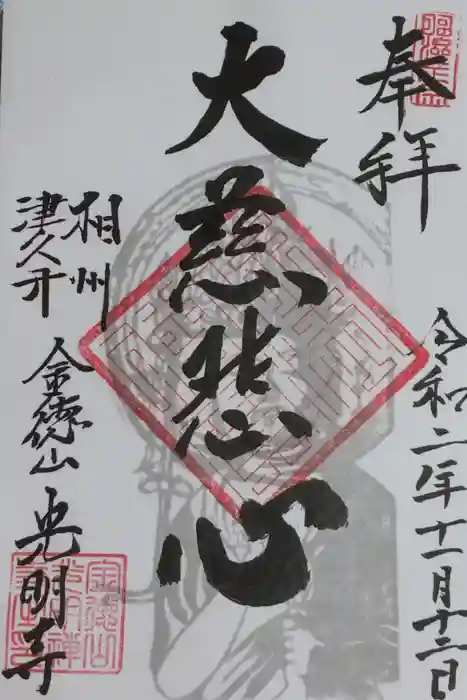 奉拝
令和二年十一月十三日
大慈悲心
相州
津久井
金徳山光明寺